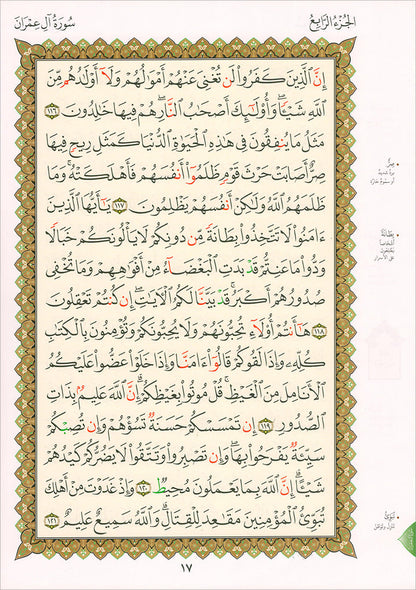 الجُزءُ الرَّابِعُ
سُورَةُ آلِ عِمْرَانَ
إِنَّ ٱلَّذِينَ كَفَرُوا۟ لَن تُغْنِىَ عَنْهُمْ أَمْوَٰلُهُمْ وَلَآ أَوْلَٰدُهُم مِّنَ
ٱللَّهِ شَيْـًٔا ۖ وَأُو۟لَٰٓئِكَ أَصْحَٰبُ ٱلنَّارِ ۚ هُمْ فِيهَا خَٰلِدُونَ ١١٦
مَثَلُ مَا يُنفِقُونَ فِى هَٰذِهِ ٱلْحَيَوٰةِ ٱلدُّنْيَا كَمَثَلِ رِيحٍ فِيهَا
صِرٌّ أَصَابَتْ حَرْثَ قَوْمٍ ظَلَمُوٓا۟ أَنفُسَهُمْ فَأَهْلَكَتْهُ ۚ وَمَا
ظَلَمَهُمُ ٱللَّهُ وَلَٰكِنْ أَنفُسَهُمْ يَظْلِمُونَ ١١٧ يَٰٓأَيُّهَا ٱلَّذِينَ
ءَامَنُوا۟ لَا تَتَّخِذُوا۟ بِطَانَةً مِّن دُونِكُمْ لَا يَأْلُونَكُمْ خَبَالًا
وَدُّوا۟ مَا عَنِتُّمْ قَدْ بَدَتِ ٱلْبَغْضَآءُ مِنْ أَفْوَٰهِهِمْ وَمَا تُخْفِى
صُدُورُهُمْ أَكْبَرُ ۚ قَدْ بَيَّنَّا لَكُمُ ٱلْـَٔايَٰتِ ۖ إِن كُنتُمْ تَعْقِلُونَ
١١٨ هَٰٓأَنتُمْ أُو۟لَآءِ تُحِبُّونَهُمْ وَلَا يُحِبُّونَكُمْ وَتُؤْمِنُونَ بِٱلْكِتَٰبِ
كُلِّهِۦ وَإِذَا لَقُوكُمْ قَالُوٓا۟ ءَامَنَّا وَإِذَا خَلَوْا۟ عَضُّوا۟ عَلَيْكُمُ
ٱلْأَنَامِلَ مِنَ ٱلْغَيْظِ ۚ قُلْ مُوتُوا۟ بِغَيْظِكُمْ ۗ إِنَّ ٱللَّهَ عَلِيمٌۢ بِذَاتِ
ٱلصُّدُورِ ١١٩ إِن تَمْسَسْكُمْ حَسَنَةٌ تَسُؤْهُمْ وَإِن تُصِبْكُمْ
سَيِّئَةٌ يَفْرَحُوا۟ بِهَا ۖ وَإِن تَصْبِرُوا۟ وَتَتَّقُوا۟ لَا يَضُرُّكُمْ كَيْدُهُمْ
شَيْـًٔا ۗ إِنَّ ٱللَّهَ بِمَا يَعْمَلُونَ مُحِيطٌ ١٢٠ وَإِذْ غَدَوْتَ مِنْ أَهْلِكَ
تُبَوِّئُ ٱلْمُؤْمِنِينَ مَقَٰعِدَ لِلْقِتَالِ ۗ وَٱللَّهُ سَمِيعٌ عَلِيمٌ ١٢١
١٧